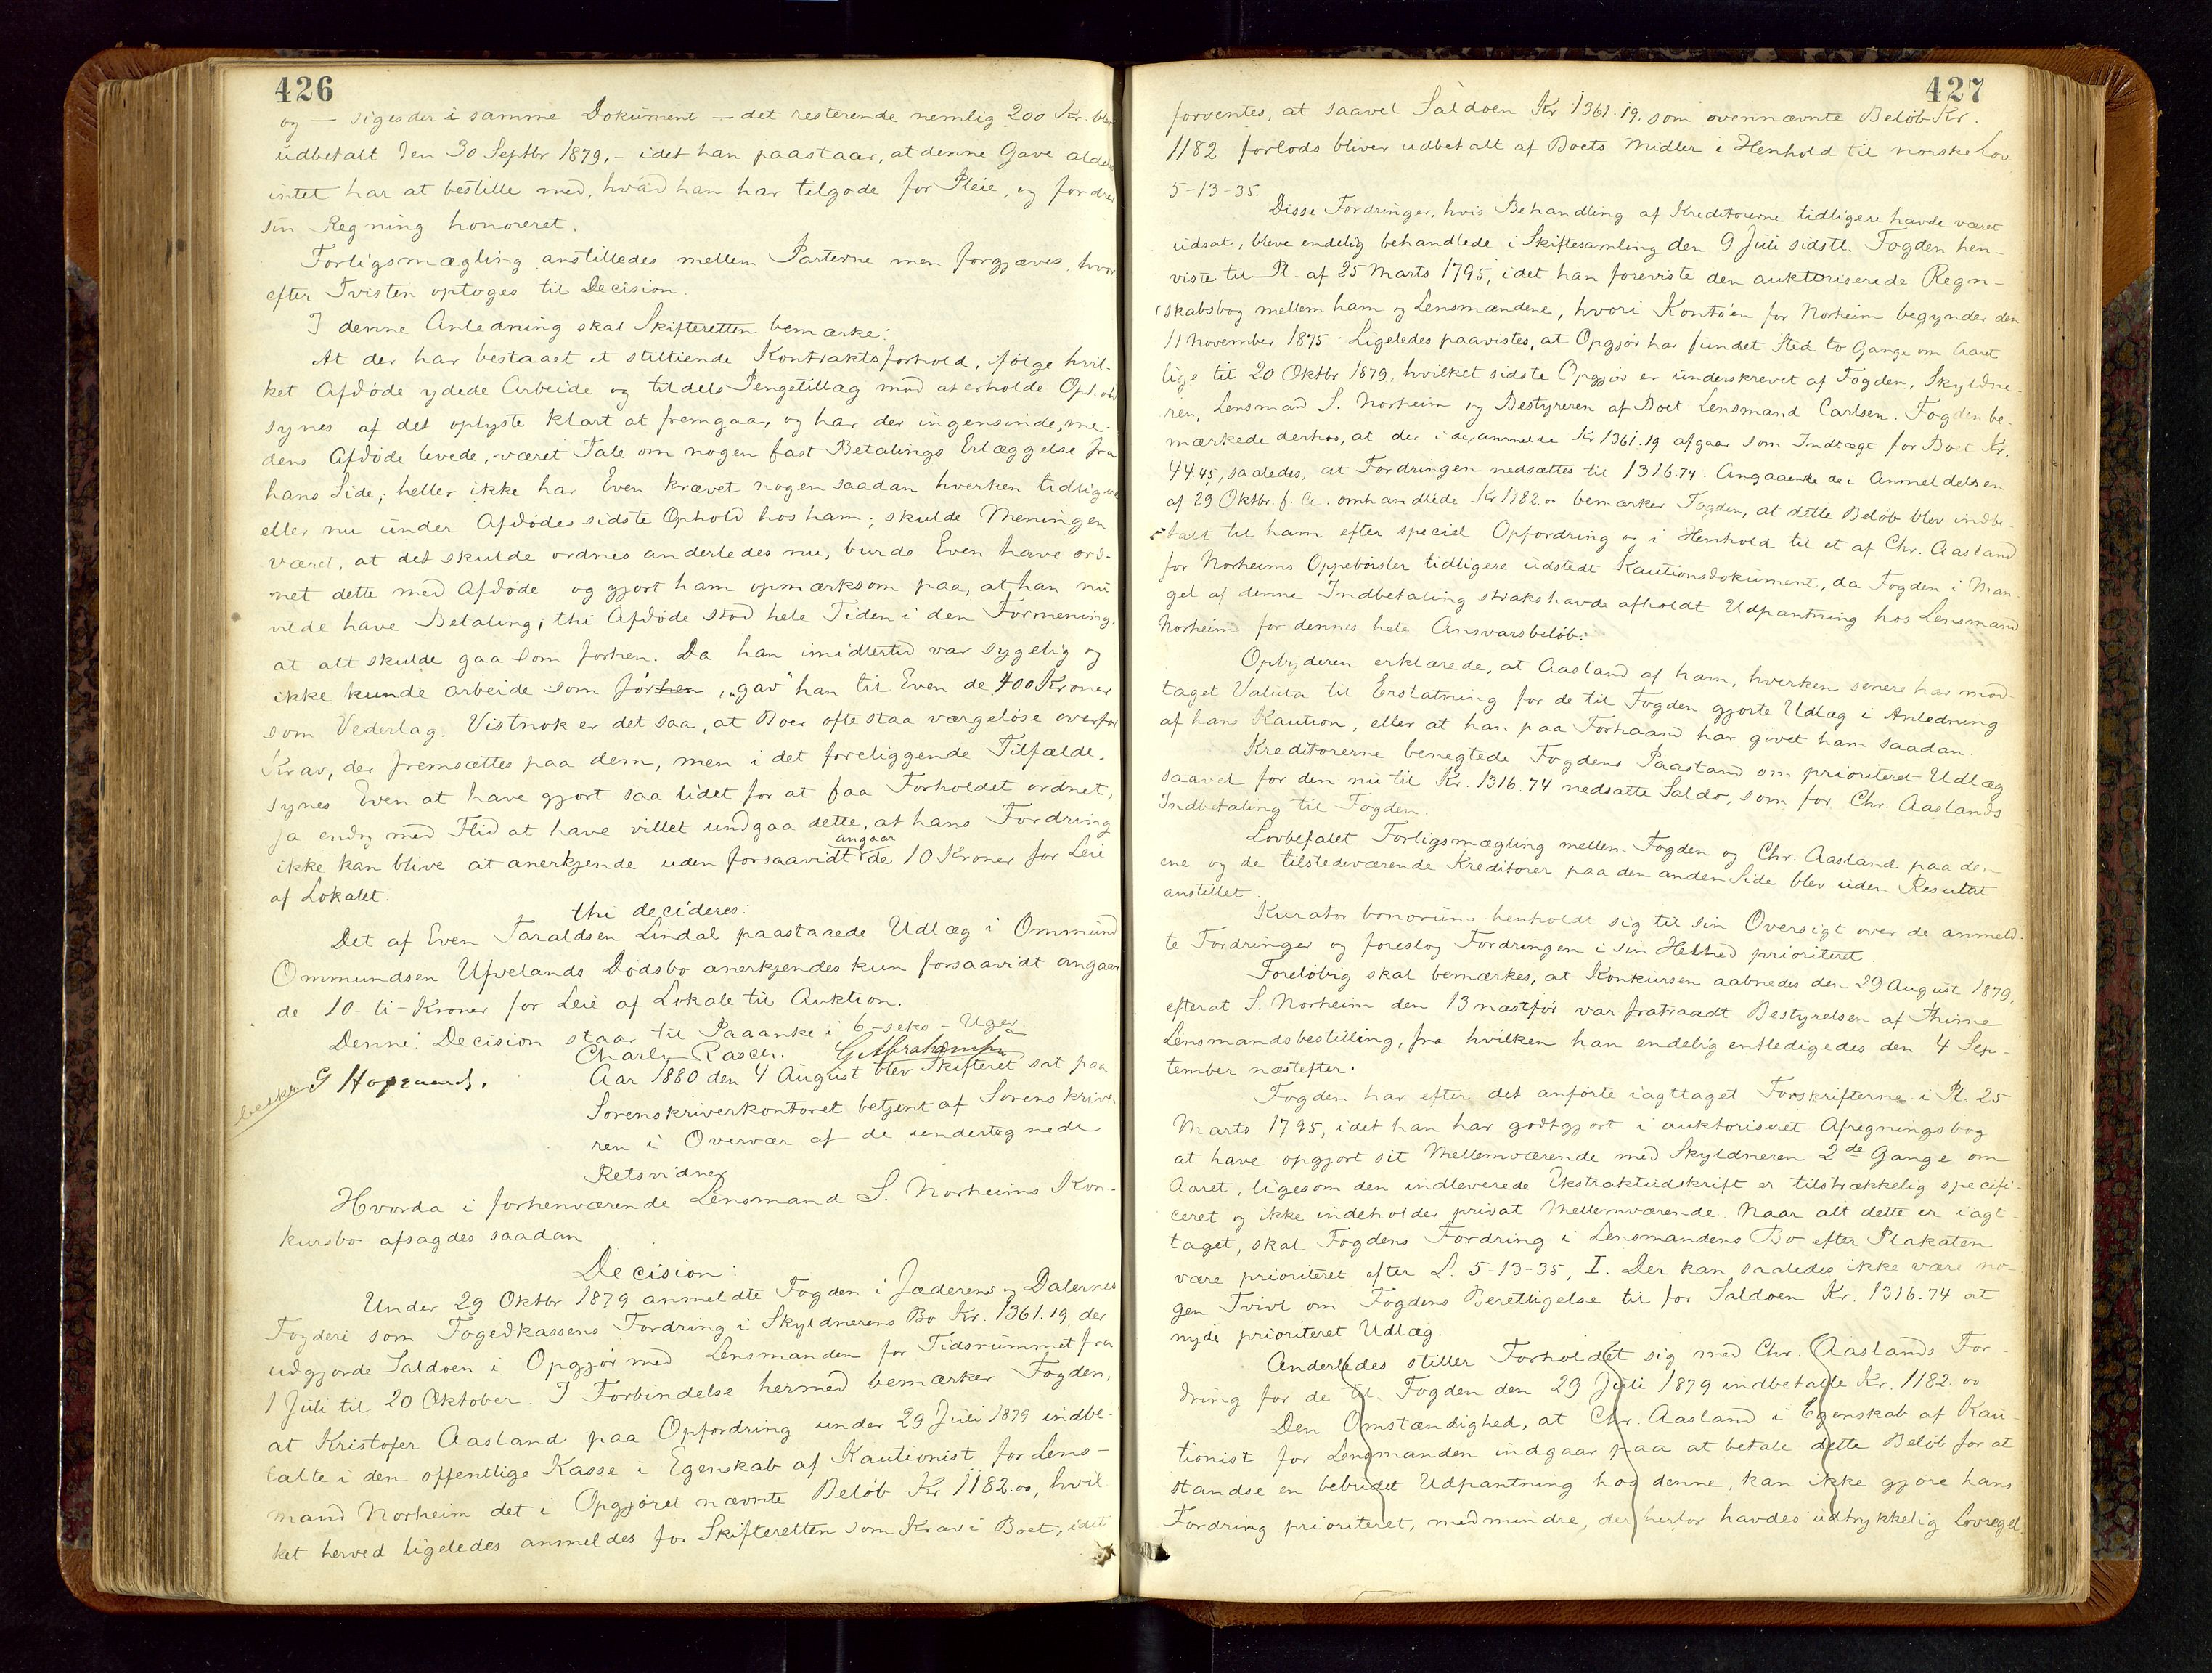 426
og — siges der i samme Dokument — det resterende nemlig 200 Kr. blev
udbetalt den 30 Septbr 1879, – idet han paastaar, at denne Gave aldeles
intet har at bestille med, hvad han har tilgode for Pleie, og fordrer
sin Regning honoreret.
Forligsmægling anstilledes mellem Parterne men forgjæves, hvor
efter Tvisten optoges til Decision.
I denne Anledning skal Skifteretten bemærke:
At der har bestaaet et stiltiende Kontraktsforhold, ifølge hvil-
ket Afdøde ydede Arbeide og tildels Pengetillæg mod at erholde Ophold
synes af det oplyste klart at fremgaa, og har der ingensinde, me-
dens Afdøde levede, været Tale om nogen fast Betalings Erlæggelse fra
hans Side; heller ikke har Even krævet nogen saadan hverken tidligere
eller nu under Afdødes sidste Ophold hos ham; skulde Meningen
været, at det skulde ordnes anderledes nu, burde Even have ord-
net dette med Afdøde og gjort ham opmærksom paa, at han nu
vilde have Betaling; thi Afdøde stod hele Tiden i den Formening,
at alt skulde gaa som forhen. Da han imidlertid var sygelig og
ikke kunde arbeide som forhen, „gav" han til Even de 400 Kroner
som Vederlag. Vistnok er det saa, at Boer ofte staa værgeløse overfor
Krav, der fremsættes paa dem, men i det foreliggende Tilfælde,
synes Even at have gjort saa lidet for at faa Forholdet ordnet,
ja endog med Flid at have villet undgaa dette, at hans Fordring
ikke kan blive at anerkjende uden forsaavidt angaar de 10 Kroner for Leie
af Lokalet.
thi decideres:
Det af Even Taraldsen Lindal paastaaede Udlæg i Ommund
Ommundsen Ufvelands Dødsbo anerkjendes kun forsaavidt angaar
de 10 - ti - Kroner for Leie af Lokale til Auktion.
Denne Decision staar til Paaanke i 6 – seks – Uger
Charly Rasch. G. Abrahamsen
Aar 1880 den 4 August blev Skifteret sat paa
Sorenskriverkontoret betjent af Sorenskrive-
ren i Overvær af de undertegnede
Retsvidner
Hvorda i forhenværende Lensmand S. Norheims Kon-
kursbo afsagdes saadan
Decision:
Under 29 Oktbr 1879 anmeldte Fogden i Jæderens og Dalernes
Fogderi som Fogedkassens Fordring i Skyldnerens Bo Kr. 1361.19, der
udgjorde Saldoen i Opgjør med Lensmanden for Tidsrummet fra
1 Juli til 20 Oktober. I Forbindelse hermed bemærker Fogden,
at Kristofer Aasland paa Opfordring under 29 Juli 1879 indbe-
talte i den offentlige Kasse i Egenskab af Kautionist for Lens-
mand Norheim det i Opgjøret nævnte Beløb Kr 1182.00, hvil
ket herved ligeledes anmeldes for Skifteretten som Krav i Boet, idet
427
forventes, at saavel Saldoen Kr 1361.19. som ovennævnte Beløb Kr.
1182 forlods bliver udbetalt af Boets Midler i Henhold til norske Lov
5-13-35.
Disse Fordringer, hvis Behandling af Kreditorerne tidligere havde været
udsat, bleve endelig behandlede i Skiftesamling den 9 Juli sidstl. Fogden hen-
viste til Pl. af 25 Marts 1795, idet han foreviste den auktoriserede Regn-
skabsbog mellem ham og Lensmændene, hvori Kontoen for Norheim begynder den
11 November 1875. Ligeledes paavistes, at Opgjør har fundet Sted to Gange om Aaret
lige til 20 Oktbr 1879, hvilket sidste Opgjør er underskrevet af Fogden, Skyldne-
ren, Lensmand S. Norheim og Bestyreren af Boet Lensmand Carlsen. Fogden be-
mærkede derhos, at der i de anmeldte Kr 1361.19 afgaar som Indtægt for Boet Kr.
44.45, saaledes, at Fordringen nedsættes til 1316.74. Angaaende de i Anmeldelsen
af 29 Oktbr. f. A. omhandlede Kr 1182.00 bemærker Fogden, at dette Beløb blev indbe-
talt til ham efter speciel Opfordring og i Henhold til et af Chr. Aasland
for Norheims Oppebørsler tidligere udstedt Kautionsdokument, da Fogden i Man-
gel af denne Indbetaling straks havde afholdt Udpantning hos Lensmand
Norheim for dennes hele Ansvarsbeløb.
Opbyderen erklærede, at Aasland af ham, hverken senere har mod-
taget Valuta til Erstatning for de til Fogden gjorte Udlæg i Anledning
af hans Kaution, eller at han paa Forhaand har givet ham saadan.
Kreditorerne benegtede Fogdens Paastand om prioriteret Udlæg
saavel for den nu til Kr. 1316.74 nedsatte Saldo, som for Chr. Aaslands
Indbetaling til Fogden.
Lovbefalet Forligsmægling mellem Fogden og Chr. Aasland paa den
ene og de tilstedeværende Kreditorer paa den anden Side blev uden Resultat
anstillet.
Kurator bonorum henholdt sig til sin Oversigt over de anmeld-
te Fordringer og foreslog Fordringen i sin Helhed prioriteret.
Foreløbig skal bemærkes, at Konkursen aabnedes den 29 August 1879,
efterat S. Norheim den 13 næstfør var fratraadt Bestyrelsen af Thime
Lensmandsbestilling, fra hvilken han endelig entledigedes den 4 Sep-
tember næstefter.
Fogden har efter det anførte iagttaget Forskrifterne i Pl. 25
Marts 1795, idet han har godtgjort i auktoriseret Afregningsbog
at have opgjort sit Mellemværende med Skyldneren 2de Gange om
Aaret, ligesom den indleverede Ekstraktudskrift er tilstrækkelig specifi-
ceret og ikke indeholder privat Mellemværende. Naar alt dette er iagt-
taget, skal Fogdens Fordring i Lensmandens Bo efter Plakaten
være prioriteret efter L. 5-13-35, I. Der kan saaledes ikke være no-
gen Tvivl om Fogdens Berettigelse til for Saldoen Kr. 1316.74 at
nyde prioriteret Udlæg.
Anderledes stiller Forholdet sig med Chr. Aaslands For-
dring for de til Fogden den 29 Juli 1879 indbetalte Kr. 1182.00.
Den Omstændighed, at Chr. Aasland i Egenskab af Kau-
tionist for Lensmanden indgaar paa at betale dette Beløb for at
standse en bebudet Udpantning hos denne, kan ikke gjøre hans
Fordring prioriteret, medmindre, der herfor havdes udtrykkelig Lovregel